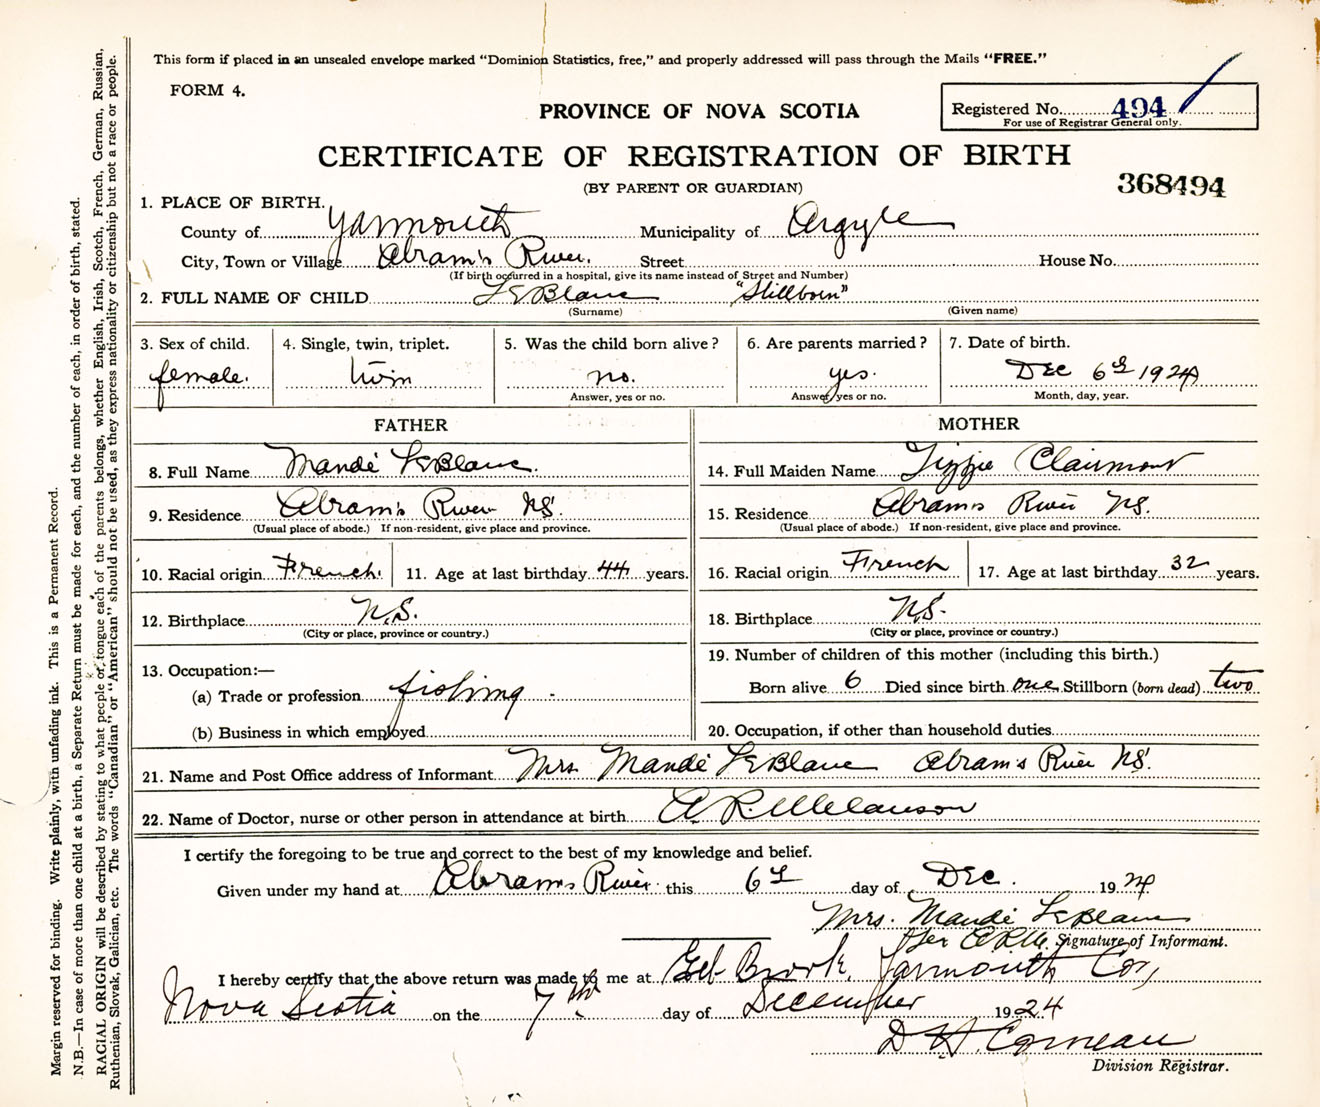 This form if placed in an unsealed envelope marked “Dominion Statistics, free,” and properly addressed will pass through the Mails “FREE.”
FORM 4.
PROVINCE OF NOVA SCOTIA
Registered No. 494
For use of Registrar General only.
CERTIFICATE OF REGISTRATION OF BIRTH
(BY PARENT OR GUARDIAN)
368494
1. PLACE OF BIRTH.
County of Yarmouth Municipality of Argyle
City, Town or Village Abram's River. Street House No.
(If birth occurred in a hospital, give its name instead of Street and Number)
2. FULL NAME OF CHILD LeBlanc "Stillborn"
(Surname) (Given name)
3. Sex of child. 4. Single, twin, triplet. 5. Was the child born alive? 6. Are parents married? 7. Date of birth.
female. twin no. yes. Dec 6th 1924
Answer, yes or no. Answer, yes or no. Month, day, year.
FATHER
8. Full Name Mandé LeBlanc.
9. Residence Abram's River NS.
(Usual place of abode.) If non-resident, give place and province.
10. Racial origin French. 11. Age at last birthday 44 years.
12. Birthplace N.S.
(City or place, province or country.)
13. Occupation:—
(a) Trade or profession fishing -
(b) Business in which employed
MOTHER
14. Full Maiden Name Lizzie Clairmont
15. Residence Abrams River NS.
(Usual place of abode.) If non-resident, give place and province.
16. Racial origin French 17. Age at last birthday 32 years.
18. Birthplace NS.
(City or place, province or country.)
19. Number of children of this mother (including this birth.)
Born alive 6 Died since birth one Stillborn (born dead) two
20. Occupation, if other than household duties
21. Name and Post Office address of Informant Mrs Mandé LeBlanc Abram's River NS.
22. Name of Doctor, nurse or other person in attendance at birth A. R. Melanson
I certify the foregoing to be true and correct to the best of my knowledge and belief.
Given under my hand at Abrams River this 6th day of Dec. 1924
Mrs. Mandé LeBlanc
Per ARM. Signature of Informant.
I hereby certify that the above return was made to me at Brook, Yarmouth Co,
Nova Scotia on the 7th day of December 1924
D H. Comeau
Division Registrar.
Margin reserved for binding. Write plainly, with unfading ink. This is a Permanent Record.
N.B.—In case of more than one child at a birth, a Separate Return must be made for each, and the number of each, in order of birth, stated.
RACIAL ORIGIN will be described by stating to what people or tongue each of the parents belongs, whether English, Irish, Scotch, French, German, Russian,
Ruthenian, Slovak, Galician, etc. The words “Canadian” or “American” should not be used, as they express nationality or citizenship but not a race or people.